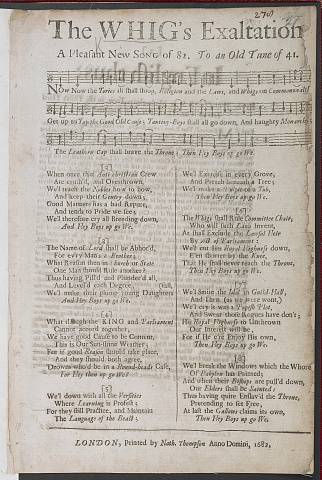 The WHIG's Exaltation
A Pleasant New SONG of 82. To an Old Tune of 41.
NOw Now the Tories all shall stoop, Religion and the Laws, and Whigs on Commonwealth
Get up to Tap the Good Old Cause; Tantivy-Boys shall all go down, And haughty Monarchy
The Leathern Cap shall brave the Throne; Then Hey Boys up go We.
[2]
When once that Anti-christian Crew
Are crush'd, and Overthrown,
We'll teach the Nobles how to bow,
And keep their Gentry down;
Good Manners has a bad Repute,
And tends to Pride we see;
We'll therefore cry all Breeding down,
And Hey Boys up go We.
[3]
The Name of Lord shall be Abhor'd,
For every Man's a Brother;
What Reason then in Church or State
One Man should Rule another?
Thus having Pill'd and Plunder'd all,
And Levell'd each Degree,
We'll make their plump young Daughters fall,
And Hey Boys up go We.
[4]
What though the KING and Parliament
Cannot accord together,
We have good Cause to be Content,
This is Our Sun-shine Weather;
For if good Reason should take place,
And they should both agree,
Drowns who'd be in a Round-heads Case,
For Hey then up go We?
[5]
We'll down with all the Versities
Where Learning is Profest;
For they still Practice, and Maintain
The Language of the Beast:
We'll Exercise in every Grove,
And Preach beneath a Tree;
We'll make a Pulpit of a Tub,
Then Hey Boys up go We.
[6]
The Whigs shall Rule Committee Chair,
Who will such Laws Invent,
As shall Exclude the Lawful Heir
By Act of Parliament:
We'll cut his Royal Highness down,
E'en shorter by the Knee,
That He shall never reach the Throne,
Then Hey Boys up go We.
[7]
We'll Smite the Idol in Guild-Hall,
And then (as we are wont,)
We'll cry it was a Popish Plot,
And Swear those Rogues have don't;
His Royal Highness to Unthrone
Our Interest will be,
For if He e're Enjoy His own,
Then Hey Boys up go We.
[8]
We'll break the Windows which the Whore
Of Babylon has Painted;
And when their Bishops are pull'd down,
Our Elders shall be Sainted:
Thus having quite Enslav'd the Throne,
Pretending to set Free,
At last the Gallows claims its own,
Then Hey Boys up go We.
LONDON, Printed by Nath. Thompson Anno Domini, 1682.